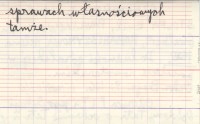 sprawach własnościowych
tamże.